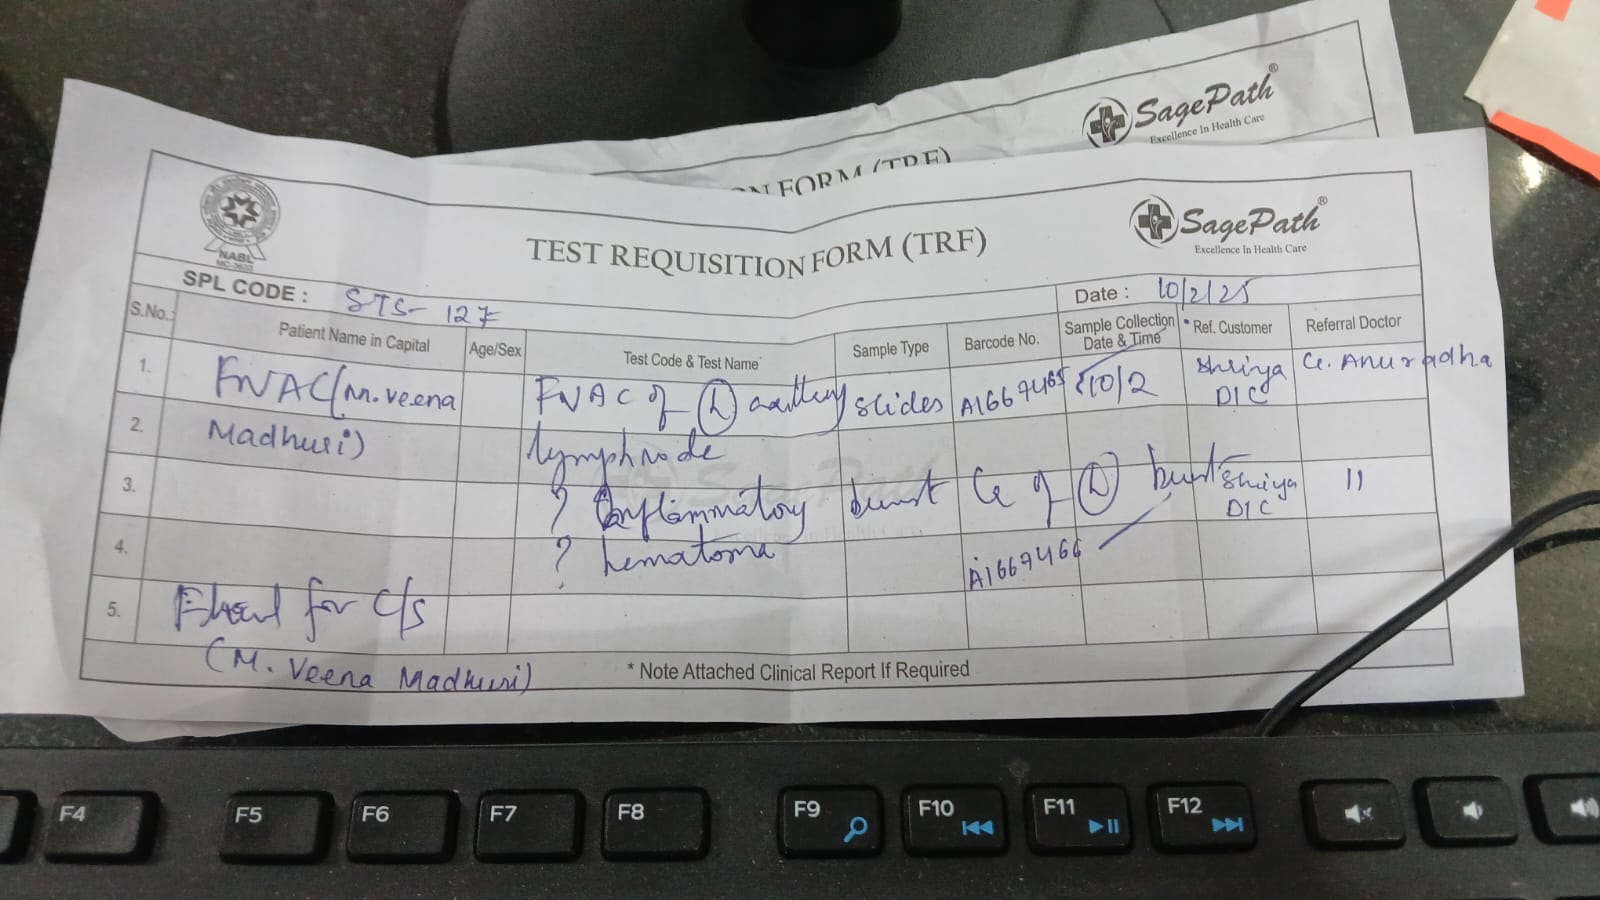 SagePath®
Excellence In Health Care
ON FORM (TRF)
NABL
TEST REQUISITION FORM (TRF)
SagePath®
Excellence In Health Care
SPL CODE : STS- 127
Date : 10/2/25
S.No.: Patient Name in Capital Age/Sex Test Code & Test Name Sample Type Barcode No. Sample Collection Date & Time * Ref. Customer Referral Doctor
1. FNAC (M. Veena FNAC of (L) axillary slides A1667465 10/2 Shriya DIC Anuradha
2. Madhuri) lymphnode
3. ? Inflammatory breast Ca of (L) breast Shriya DIC 11
4. ? hematoma A1667466
5. for C/S
(M. Veena Madhuri)
* Note Attached Clinical Report If Required
F4 F5 F6 F7 F8 F9 F10 F11 F12